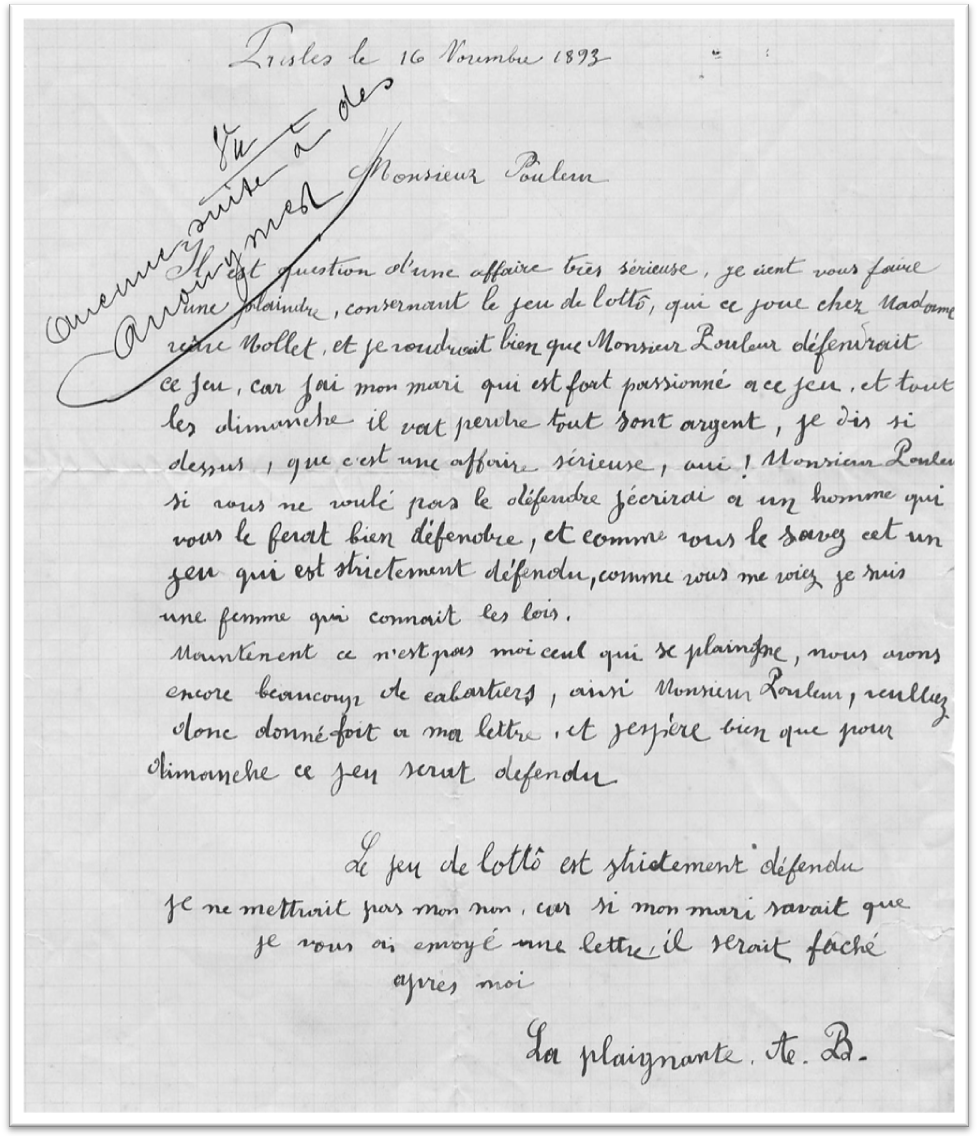 Presles le 16 Novembre 1893
Vu
aucune suite à des
anonymes
Monsieur Pouleur
Il est question d'une affaire très sérieuse, je vient vous faire
une plaindre, consernant le jeu de lottô, qui ce joue chez Madame
Mollet, et je voudrait bien que Monsieur Pouleur défendrait
ce jeu, car jai mon mari qui est fort passionné a ce jeu, et tout
les dimanche il vat perdre tout sont argent, je dis si
dessus, que c'est une affaire sérieuse, oui! Monsieur Pouleur
si vous ne voulé pas le défendre jécrirai a un homme qui
vous le ferat bien défendre, et comme vous le savez cet un
jeu qui est strictement défendu, comme vous me voiez je suis
une femme qui connait les lois.
Maintenent ce n'est pas moi ceul qui se plaingne, nous avons
encore beaucoup de cabartiers, ainsi Monsieur Pouleur, veulliez
donc donné foit a ma lettre, et jespère bien que pour
dimanche ce jeu serat defendu
Le jeu de lottô est strictement défendu
je ne mettrait pas mon non, car si mon mari savait que
je vous ai envoyé une lettre, il serait faché
après moi
La plaignante. A. B.